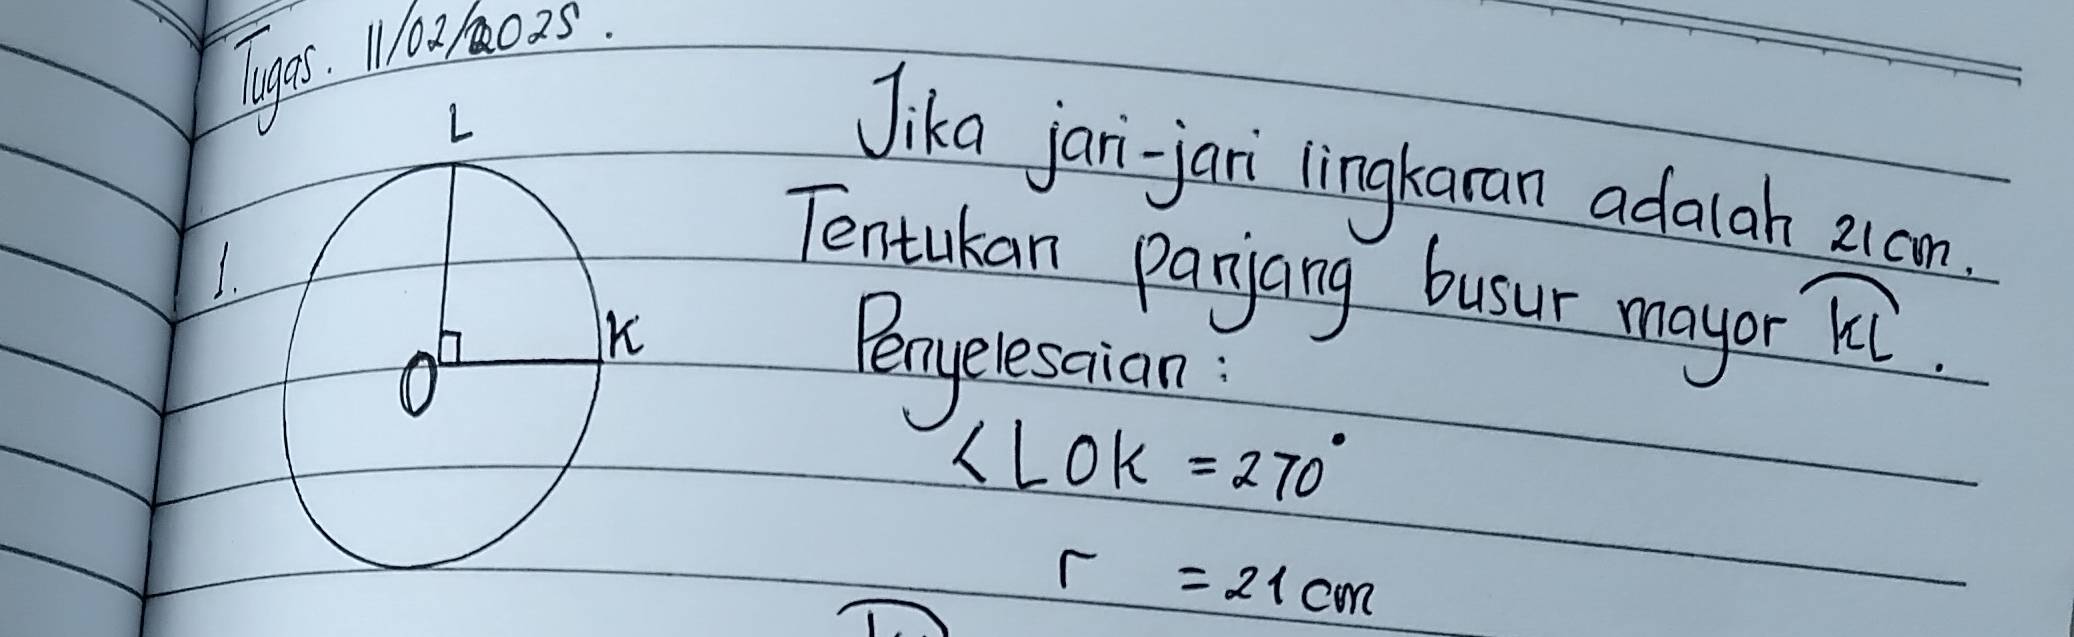 Tugas. 11/02/2025.
L
Jika jari-jari lingkaran adalah 21 cm.
1.
Tentukan panjang busur mayor KL.
K
Penyelesaian :
O
<LOK = 270°
r = 21 cm